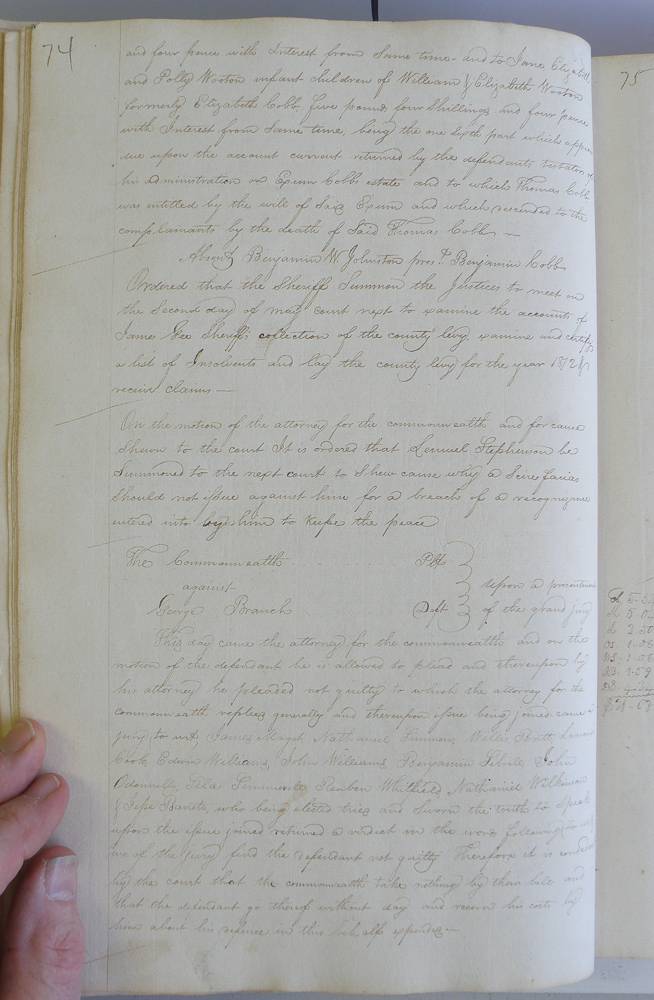 74
and four pence with Interest from Same time - and to Jane Elizabeth
and Polly Wooton infant children of William & Elizabeth Wooton
formerly Elizabeth Cobb, five pounds four Shillings and four pence
with Interest from Same time, being the one sixth part which appears
due upon the account current returned by the defendants testator of
his administration on Exum Cobbs estate and to which Thomas Cobb
was entitled by the will of Said Exum and which descended to the
complainants by the death of Said Thomas Cobb -
Absent Benjamin W Johnston prest. Benjamin Cobb
Ordered that the Sheriff Summon the Justices to meet on
the Second day of may court next to examine the accounts of
James Gee Sheriffs collection of the county levy, examine and certify
a list of Insolvents and lay the county levy for the year
receive claims -
On the motion of the attorney for the commonwealth and for cause
Shewn to the court It is ordered that Lemuel Stephenson be
Summoned to the next court to Shew cause why a Scire facias
Should not issue against him for a breach of a recognizance
entered into by him to keep the peace
The Commonwealth Plt
against upon a presentment
George Branch Deft of the grand jury
This day came the attorney for the commonwealth and on the
motion of the defendant he is allowed to plead and thereupon by
his attorney he pleaded not guilty to which the attorney for the
commonwealth replied generally and thereupon issue being joined came a
jury to wit, James Magét, Nathaniel Simmons, Willie Britt,
Cook, Edwin Williams, John Williams, Benjamin John
Odonnelly, Simmons, Reuben Whitfield, Nathaniel Wilkinson
& Jesse who being elected tried and Sworn the truth to Speak
upon the issue joined returned a verdict in the words following to wit
we of the jury find the defendant not guilty Therefore it is considered
by the court that the commonwealth take nothing by their bill and
that the defendant go thereof without day and recover his costs by
him about his defence in this behalf expended -
75